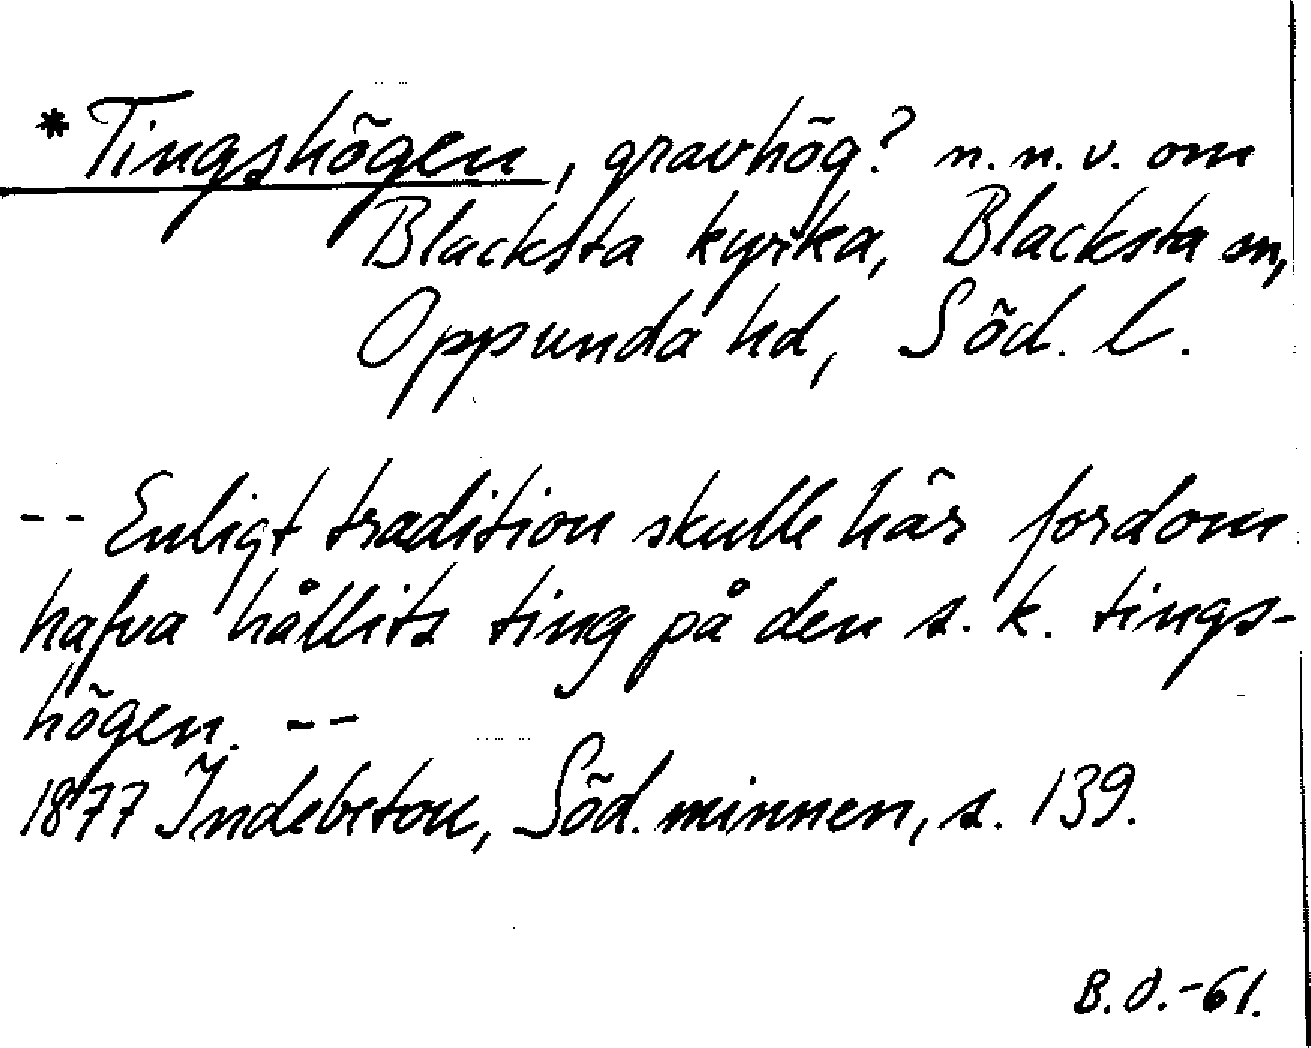 *Tingshögen, gravhög? n.n.v. om
Blacksta kyrka, Blacksta sn,
Oppunda hd, Söd. l.
-- Enligt tradition skulle här fordom
hafva hållits ting på den s.k. tings-
högen. --
1877 Indebetou, Söd. minnen, s. 139.
B.O.-61.